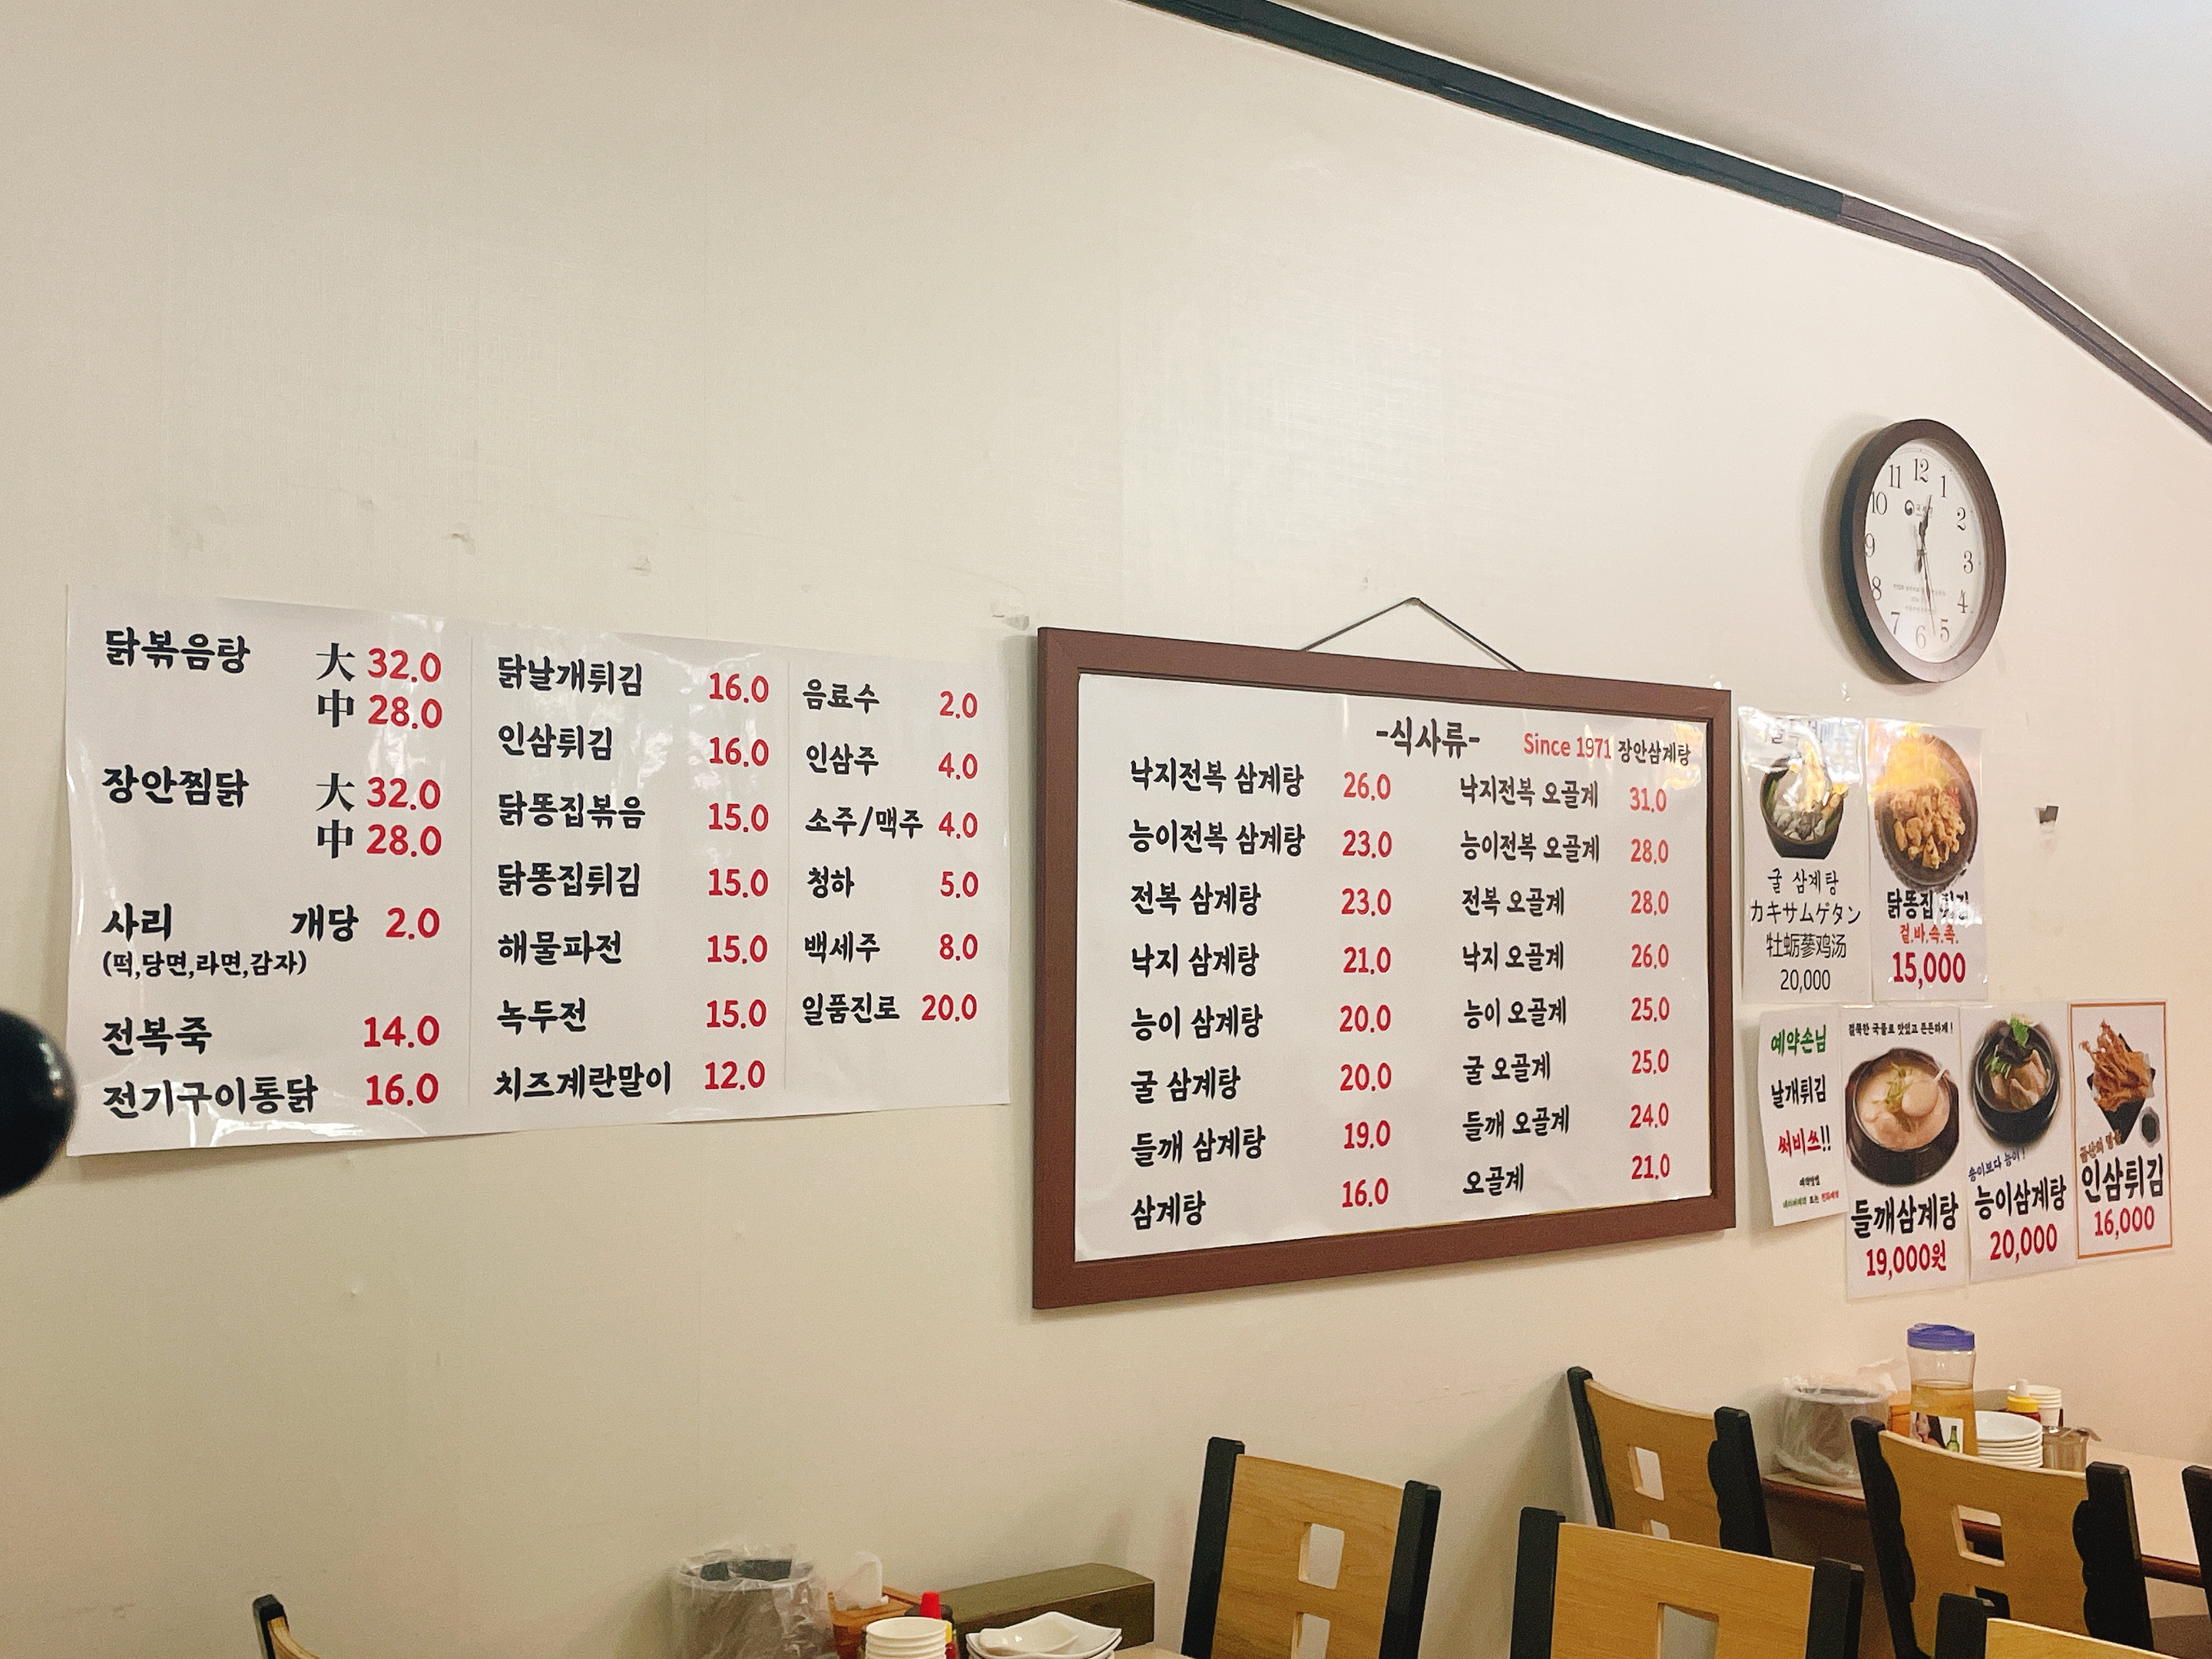 닭볶음탕 大 32.0
中 28.0
장안찜닭 大 32.0
中 28.0
사리 개당 2.0
(떡,당면,라면,감자)
전복죽 14.0
전기구이통닭 16.0
닭날개튀김 16.0
인삼튀김 16.0
닭똥집볶음 15.0
닭똥집튀김 15.0
해물파전 15.0
녹두전 15.0
치즈계란말이 12.0
음료수 2.0
인삼주 4.0
소주/맥주 4.0
청하 5.0
백세주 8.0
일품진로 20.0
-식사류- Since 1971 장안삼계탕
낙지전복 삼계탕 26.0
능이전복 삼계탕 23.0
전복 삼계탕 23.0
낙지 삼계탕 21.0
능이 삼계탕 20.0
굴 삼계탕 20.0
들깨 삼계탕 19.0
삼계탕 16.0
낙지전복 오골계 31.0
능이전복 오골계 28.0
전복 오골계 28.0
낙지 오골계 26.0
능이 오골계 25.0
굴 오골계 25.0
들깨 오골계 24.0
오골계 21.0
12
1
2
3
4
5
6
7
8
9
10
11
굴 삼계탕
カキサムゲタン
牡蛎蔘鸡汤
20,000
닭똥집 튀김
겉.바.속.촉.
15,000
예약손님
날개튀김
써비쓰!!
걸쭉한 국물로 맛있고 든든하게!
들깨삼계탕
19,000원
송이보다 능이!
능이삼계탕
20,000
인삼튀김
16,000